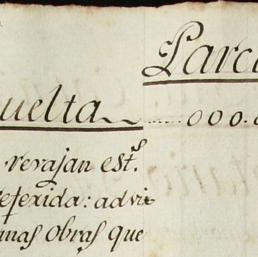 Parci
uelta 000.
revajan est.s
referida: advir
unas obras que